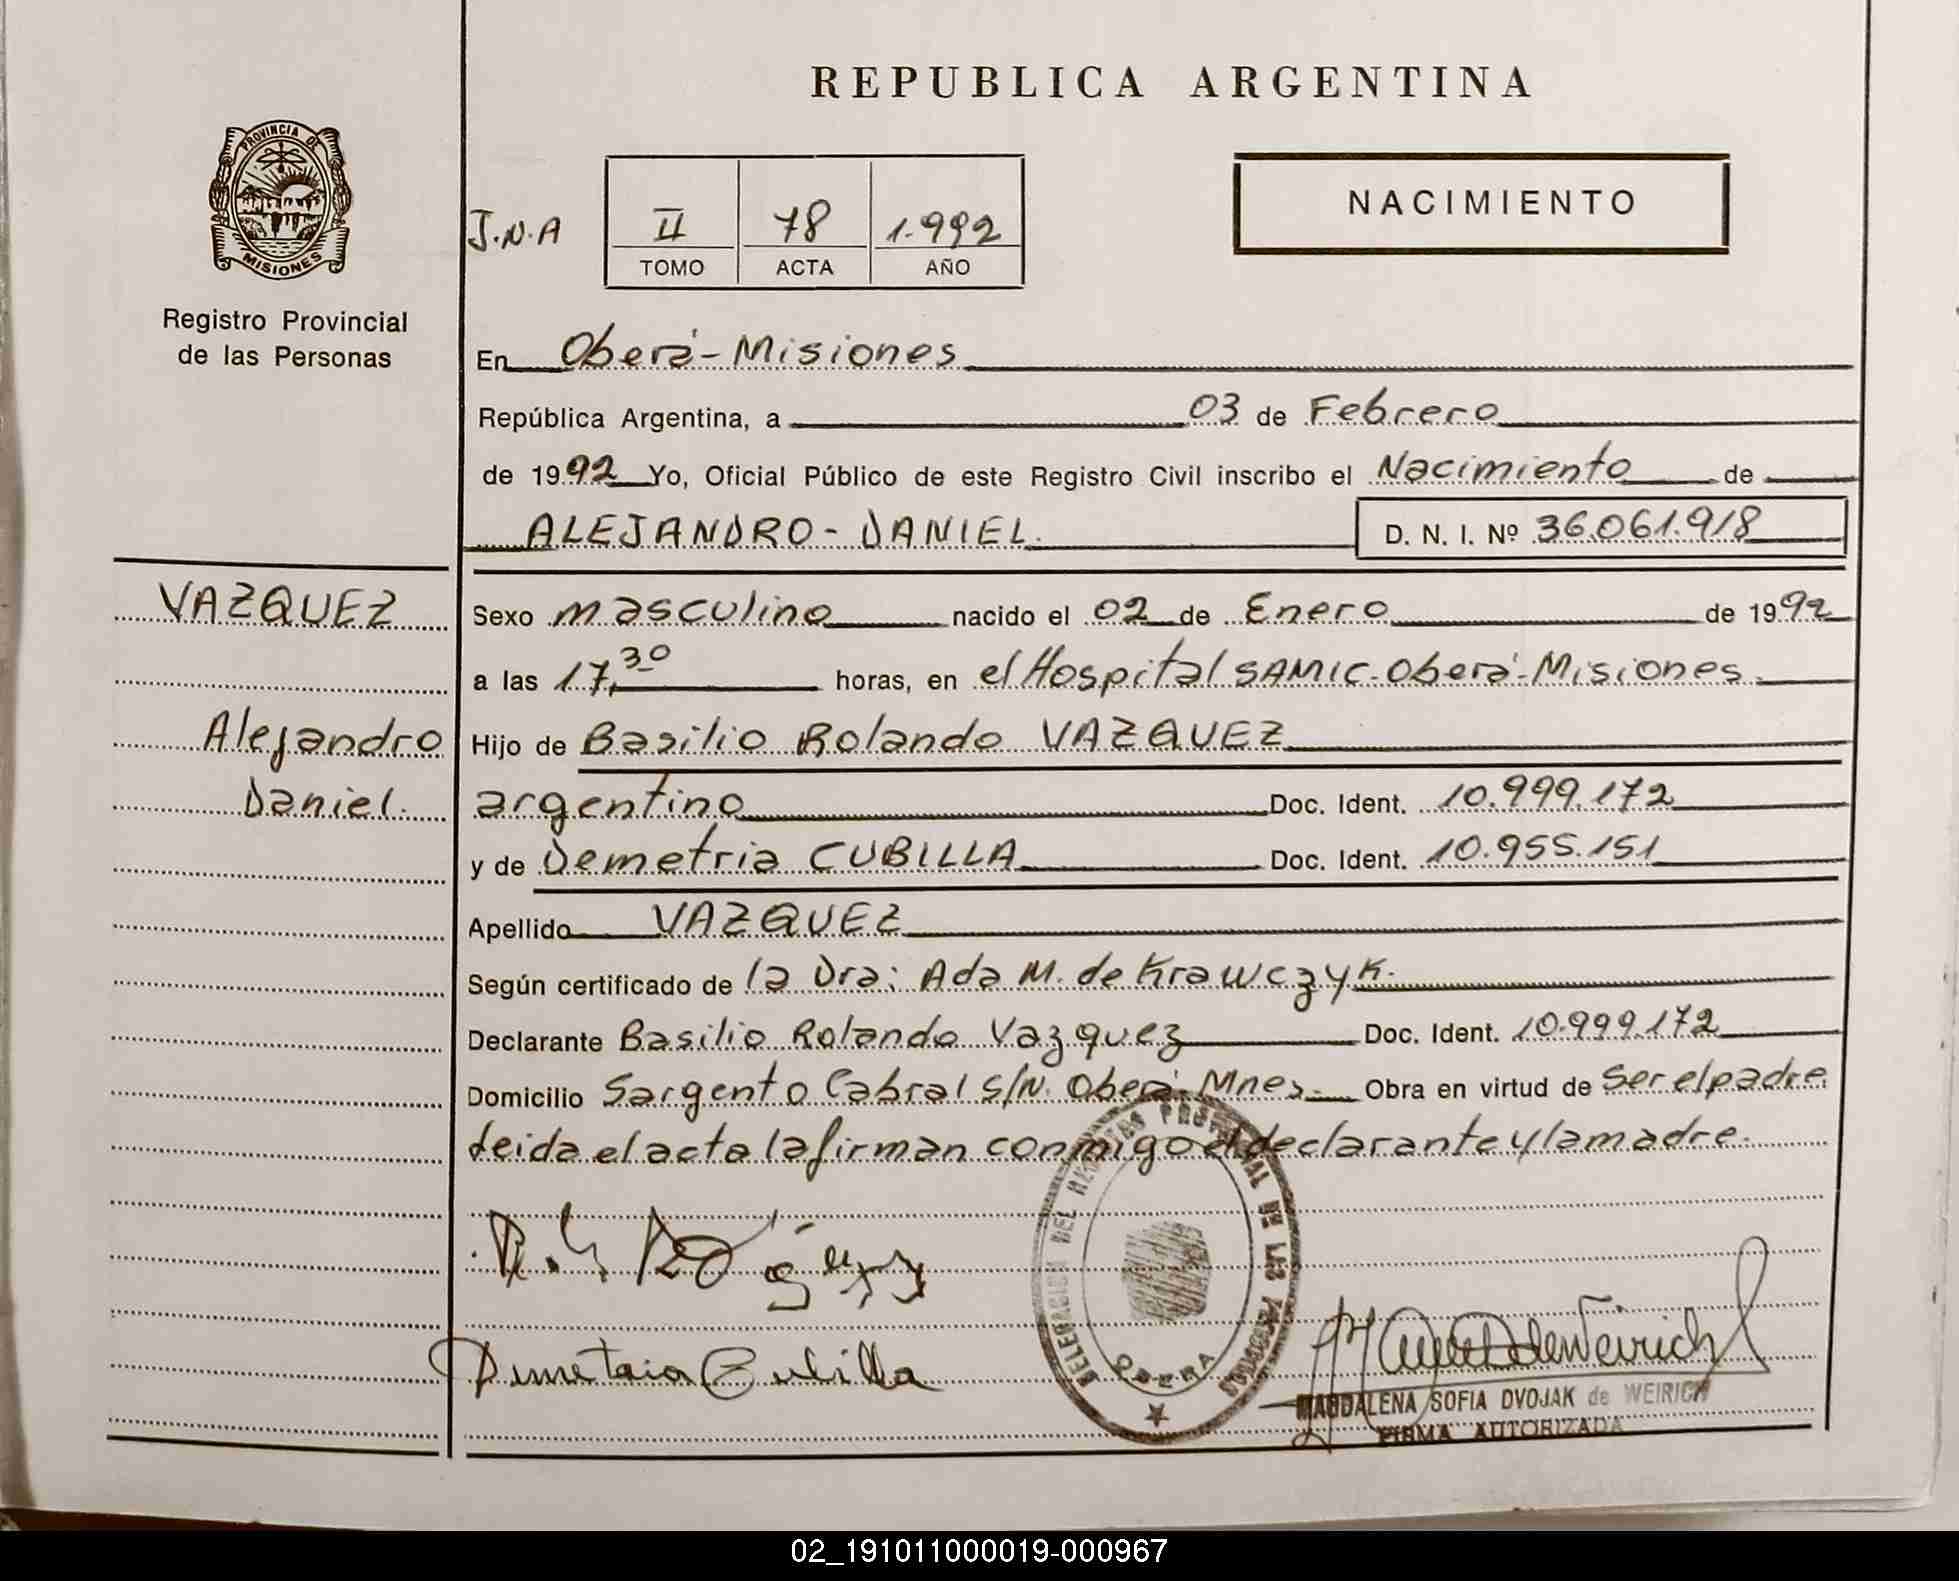 REPUBLICA ARGENTINA
PROVINCIA DE
MISIONES
Registro Provincial
de las Personas
NACIMIENTO
J.N.A
II 78 1.992
TOMO ACTA AÑO
En Oberá-Misiones
República Argentina, a 03 de Febrero
de 1992 Yo, Oficial Público de este Registro Civil inscribo el Nacimiento de
ALEJANDRO-DANIEL. D. N. I. Nº 36.061.918
VAZQUEZ
Alejandro
Daniel.
Sexo masculino nacido el 02 de Enero de 1992
a las 17,30 horas, en el Hospital SAMIC-Oberá-Misiones.
Hijo de Basilio Rolando VAZQUEZ
argentino Doc. Ident. 10.999.172
y de Demetria CUBILLA Doc. Ident. 10.955.151
Apellido VAZQUEZ
Según certificado de la Dra: Ada M. de Krawczyk.
Declarante Basilio Rolando Vazquez Doc. Ident. 10.999.172
Domicilio Sargento Cabral S/N. Oberá-Mnes. Obra en virtud de Ser el padre
Leida el acta la firman conmigo el declarante y la madre.
Demetria Cubilla
OBERA
MAGDALENA SOFIA DVOJAK de WEIRICH
FIRMA AUTORIZADA
02_191011000019-000967